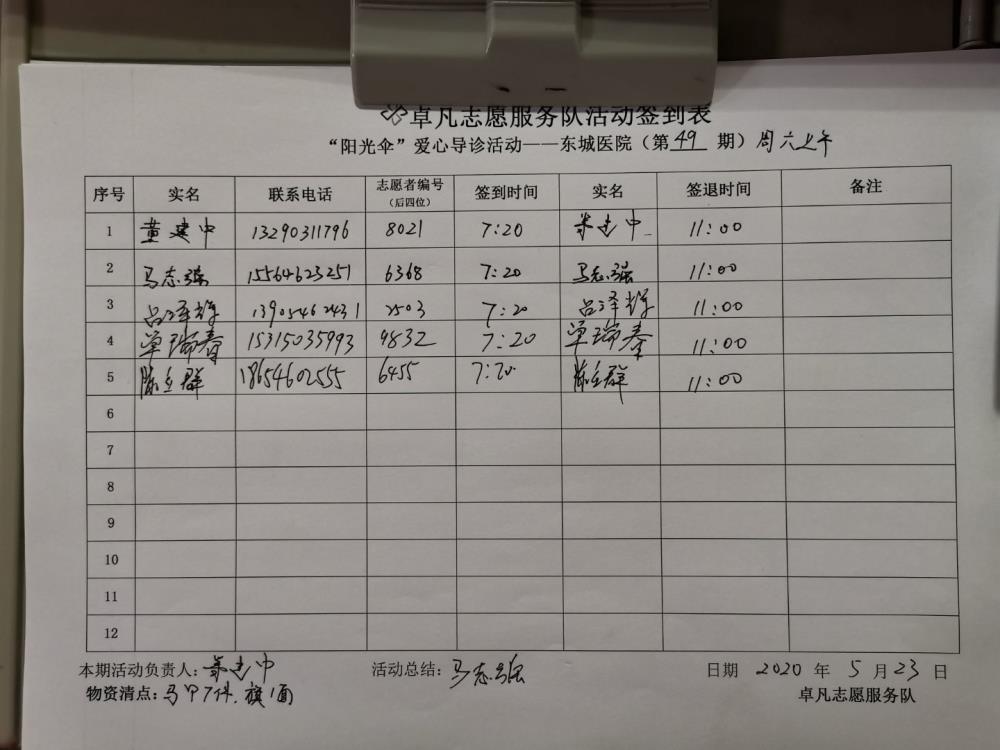 卓凡志愿服务队活动签到表
“阳光伞”爱心导诊活动——东城医院(第 49 期)周六上午
序号 实名 联系电话 志愿者编号(后四位) 签到时间 实名 签退时间 备注
1 董建中 13290311796 8021 7:20 董建中 11:00
2 马志强 15564623251 6368 7:20 马志强 11:00
3 吕泽辉 13905462431 2503 7:20 吕泽辉 11:00
4 单瑞春 15315035993 9832 7:20 单瑞春 11:00
5 陈立群 18654602555 6455 7:20 陈立群 11:00
6
7
8
9
10
11
12
本期活动负责人:董建中 活动总结:马志强 日期 2020 年 5 月 23 日
物资清点:马甲7件,旗1面 卓凡志愿服务队